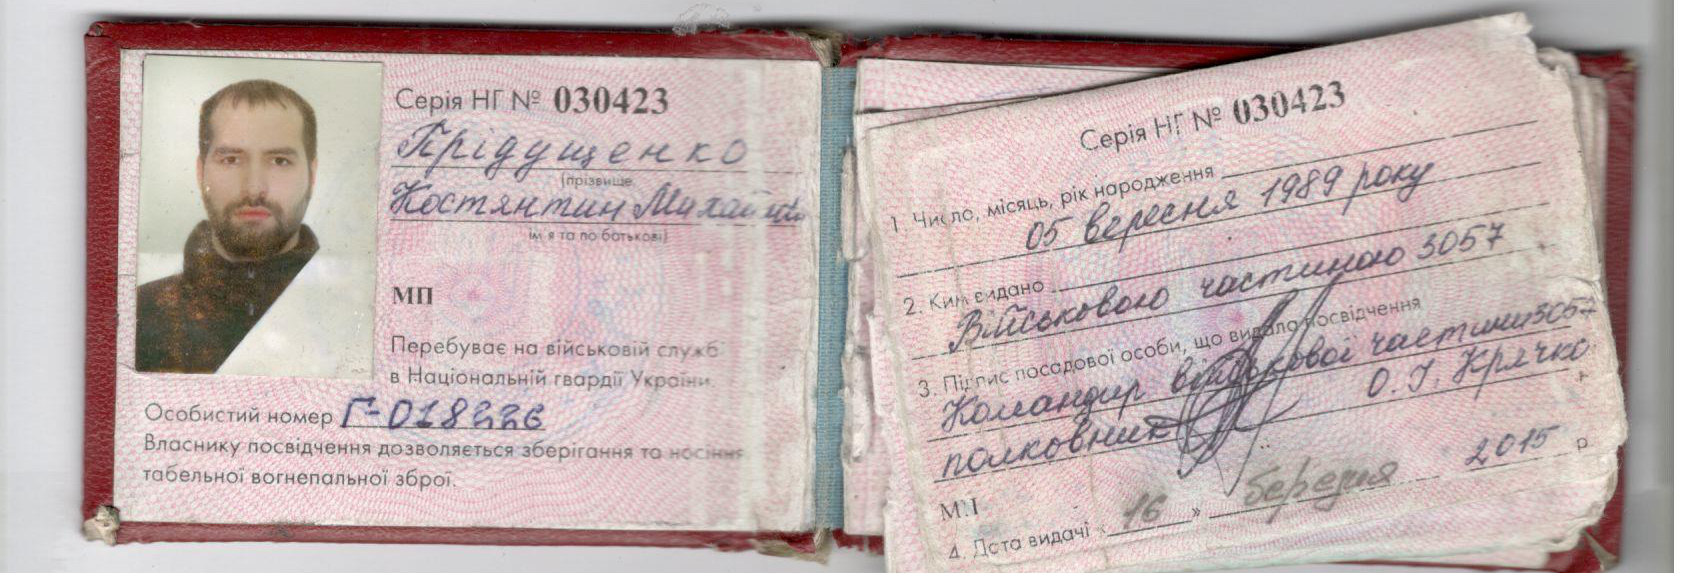 Серія НГ № 030423
Прідущенко
(прізвище,
Костянтин
ім'я та по батькові)
МП
Перебуває на військовій служб
в Національній гвардії України.
Особистий номер Г-018226
Власнику посвідчення дозволяється зберігання та носіння
табельної вогнепальної зброї.
Серія НГ № 030423
1 Число, місяць, рік народження
05 вересня 1989 року
2. Ким видано
Військовою частиною 3057
3. Підпис посадової особи, що видала посвідчення
Командир військової частини 3057
полковник О. І. Крячко
МП
4. Дата видачі « 16 » березня 2015 р